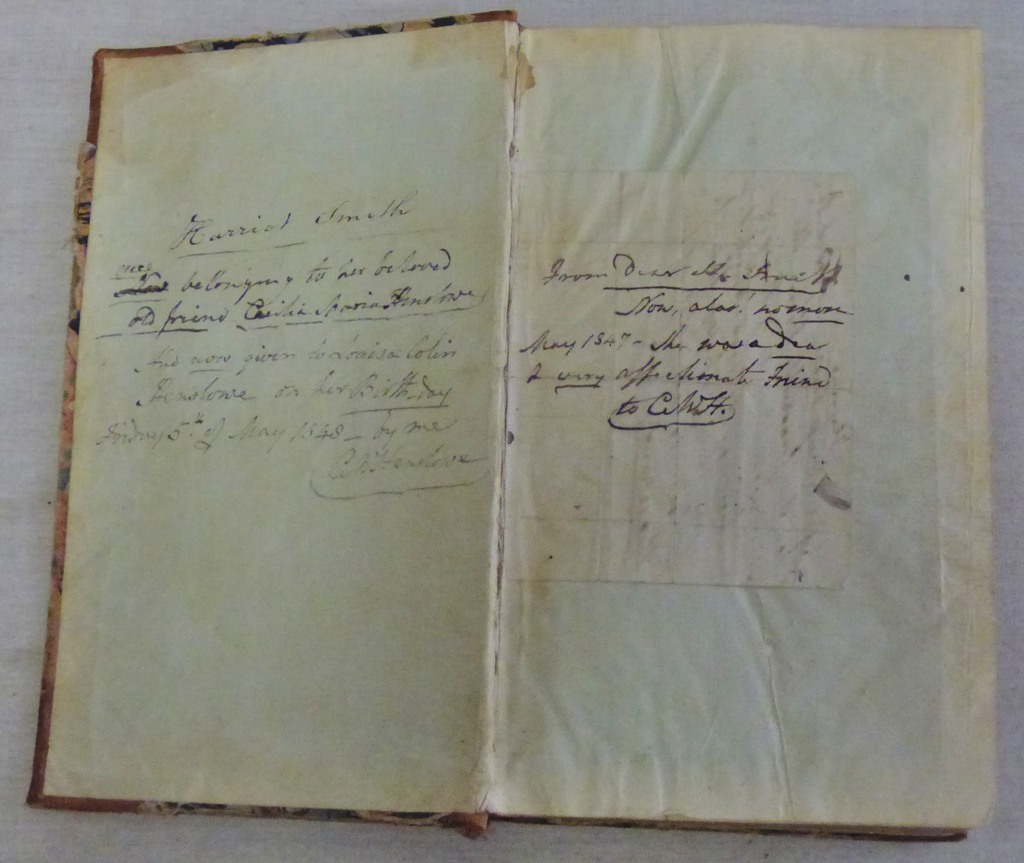 Harriet Smith
once
belonging to her beloved
old friend Cecilia Maria Henslowe
And now given to Louisa Colin
Henslowe on her Birth-day
Friday 5th of May 1848 - by me
C.M. Henslowe
From Dear Mrs Smith
Now, alas! no more
May 1847 - She was a Dear
& very affectionate Friend
to C.M.H.